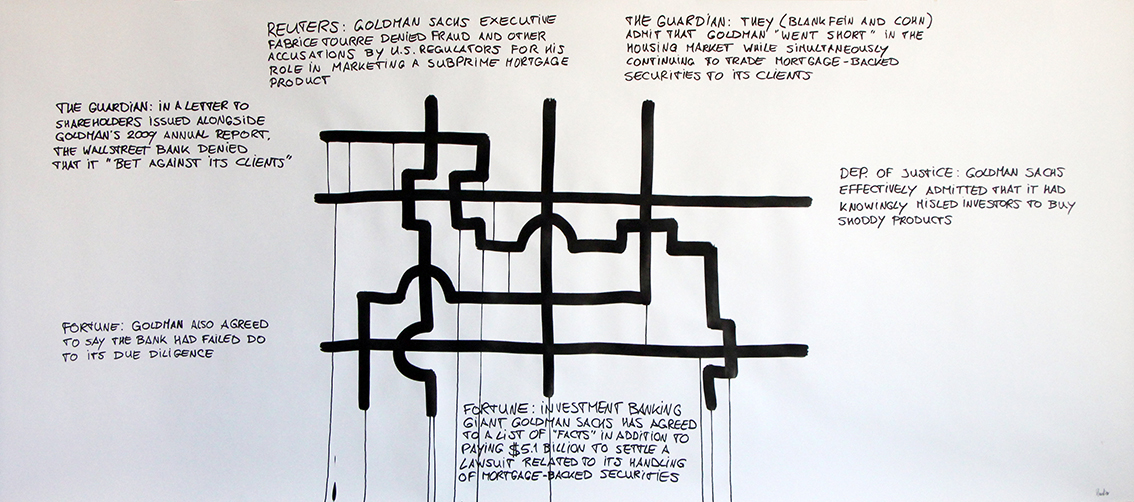 REUTERS: GOLDMAN SACHS EXECUTIVE
FABRICE TOURRE DENIED FRAUD AND OTHER
ACCUSATIONS BY U.S. REGULATORS FOR HIS
ROLE IN MARKETING A SUBPRIME MORTGAGE
PRODUCT
THE GUARDIAN: THEY (BLANKFEIN AND COHN)
ADMIT THAT GOLDMAN "WENT SHORT" IN THE
HOUSING MARKET WHILE SIMULTANEOUSLY
CONTINUING TO TRADE MORTGAGE-BACKED
SECURITIES TO ITS CLIENTS
THE GUARDIAN: IN A LETTER TO
SHAREHOLDERS ISSUED ALONGSIDE
GOLDMAN'S 2009 ANNUAL REPORT,
THE WALLSTREET BANK DENIED
THAT IT "BET AGAINST ITS CLIENTS"
DEP. OF JUSTICE: GOLDMAN SACHS
EFFECTIVELY ADMITTED THAT IT HAD
KNOWINGLY MISLED INVESTORS TO BUY
SHODDY PRODUCTS
FORTUNE: GOLDMAN ALSO AGREED
TO SAY THE BANK HAD FAILED DO
TO ITS DUE DILIGENCE
FORTUNE: INVESTMENT BANKING
GIANT GOLDMAN SACHS HAS AGREED
TO A LIST OF "FACTS" IN ADDITION TO
PAYING $5.1 BILLION TO SETTLE A
LAWSUIT RELATED TO ITS HANDLING
OF MORTGAGE-BACKED SECURITIES